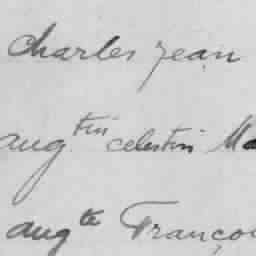 charles jean
aug^tin celestin Ma
aug^te Françoi